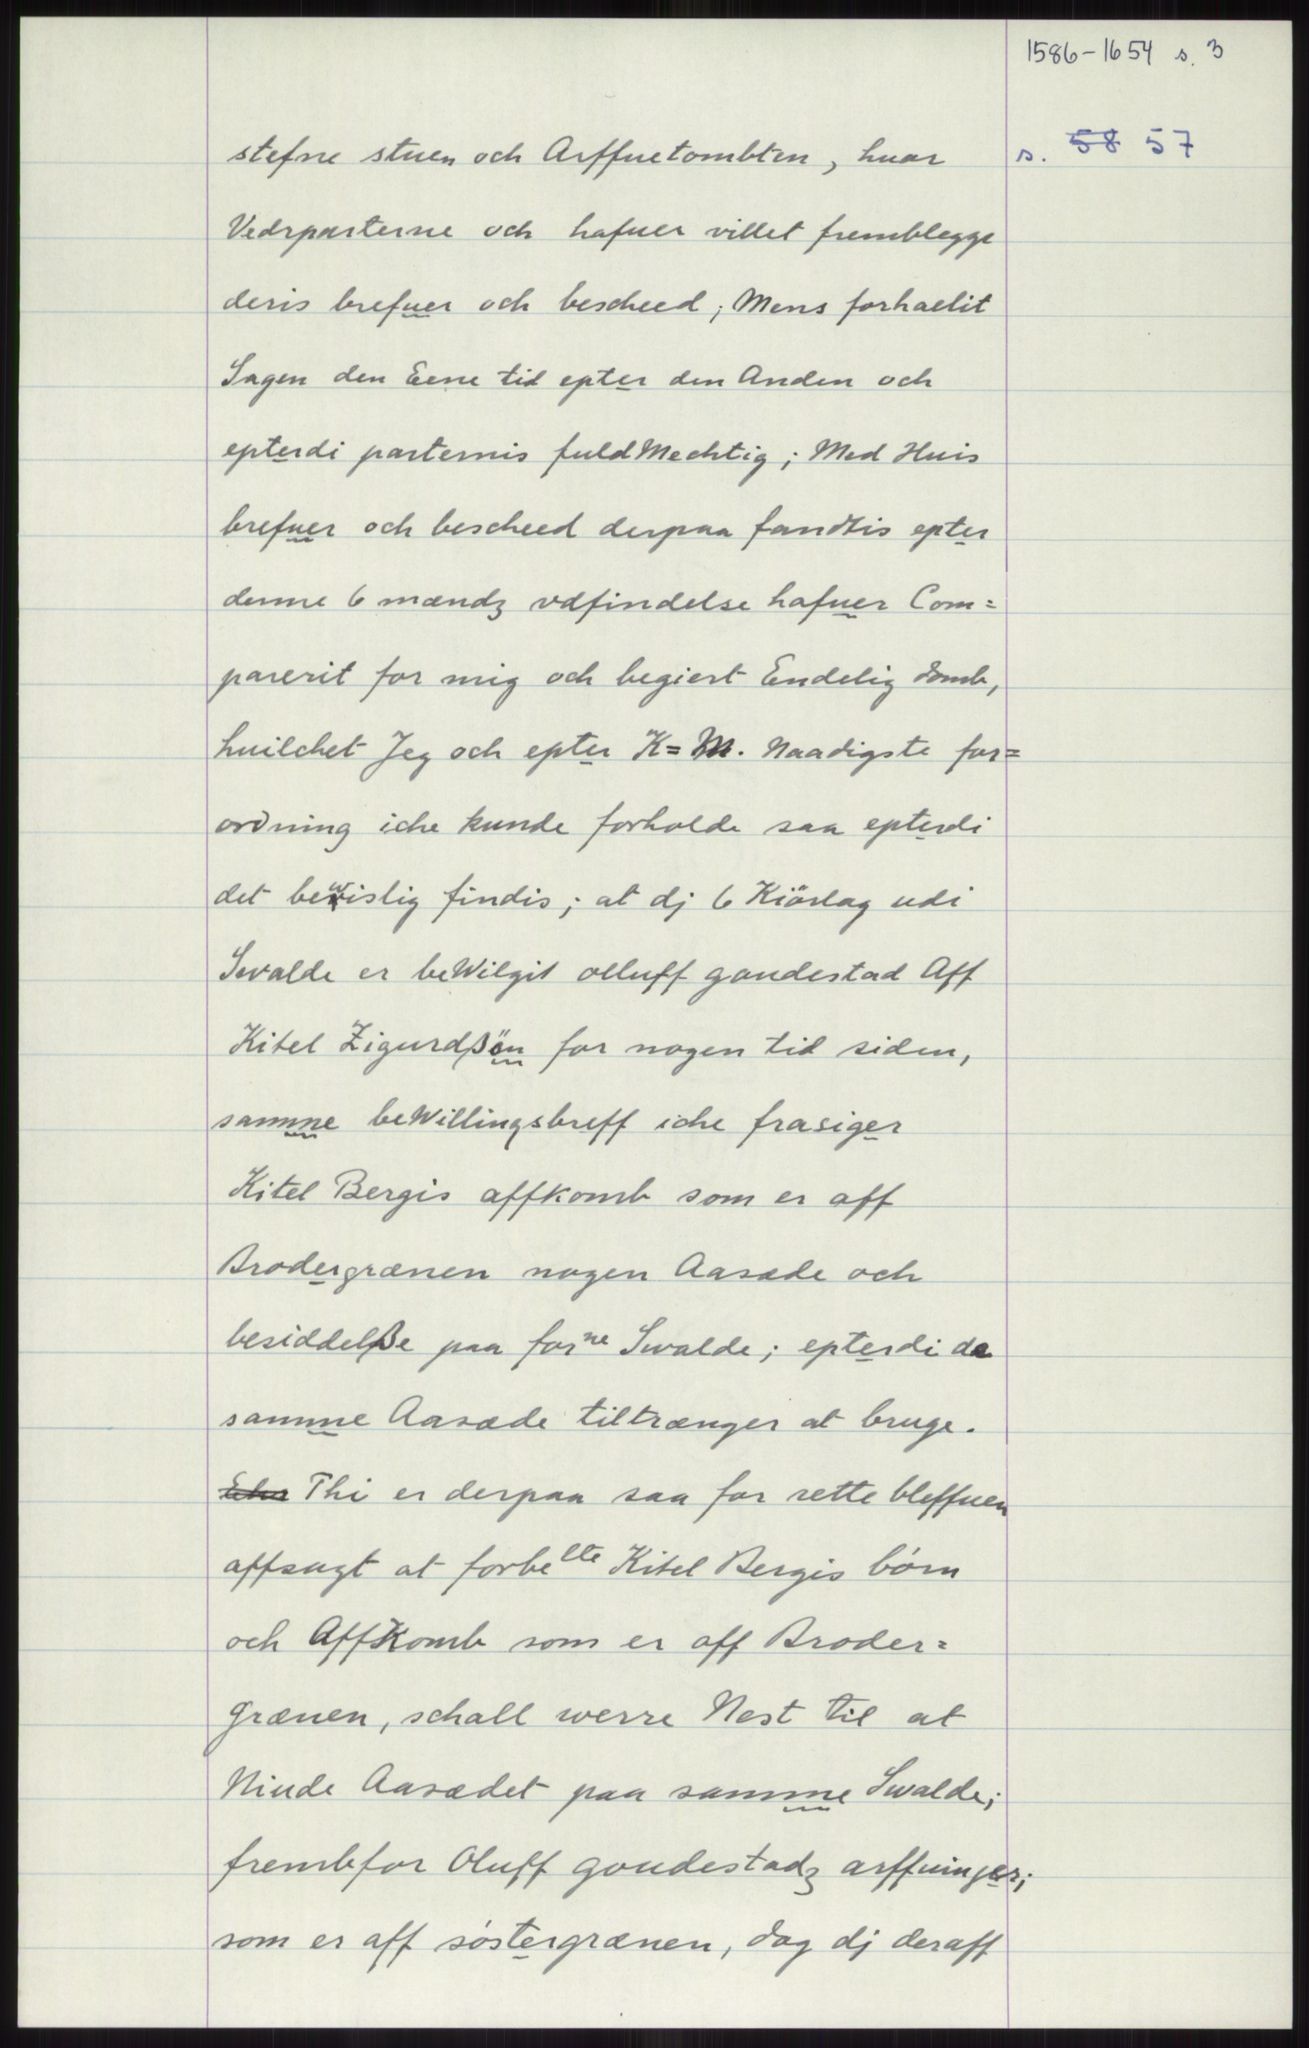 1586-1654 s. 3
s. 58 57
stefne stuen och Arffuetombten, huor
Vedrparterne och hafuer villet fremblegge
deris brefuer och bescheed; Mens forhaelit
Sagen den Eene tid epter den Anden och
epterdi parternis fuldMechtig; Med Huis
brefuer och bescheed derpaa fandtis epter
denne 6 mændz vdfindelse hafuer Com=
parerit for mig och begiert Endelig domb,
huilchet Jeg och epter K=M. Naadigste for=
ordning iche kunde forholde saa epterdi
det bewislig findis; at dj 6 Kiörlag udi
Swalde er beWilgit olluff goudestad Aff
Kitel Zigurdßön for nogen tid siden,
samme beWillingsbreff iche frasiger
Kitel Bergis affkomb som er aff
Brodergrænen nogen Aasæde och
besiddelße paa forne Swalde; epterdi de
samme Aasæde tiltrænger at bruge.
Ehr Thi er derpaa saa for rette bleffuen
affsagt at forbelte Kitel Bergis börn
och AffKomb som er aff Broder=
grænen, schall werre Nest til at
Niude Aasædet paa samme Swalde;
frembfor Oluff goudestadz arffuinger;
som er aff söstergrænen, dog dj deraff